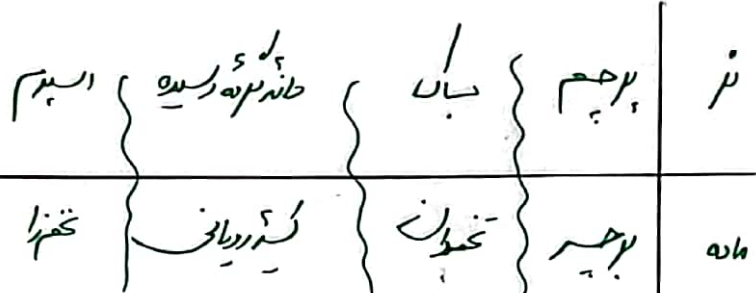 نر پرچم بساک دانه گرده رسیده اسپرم
ماده برچه تخمدان کیسه رویانی تخم‌زا